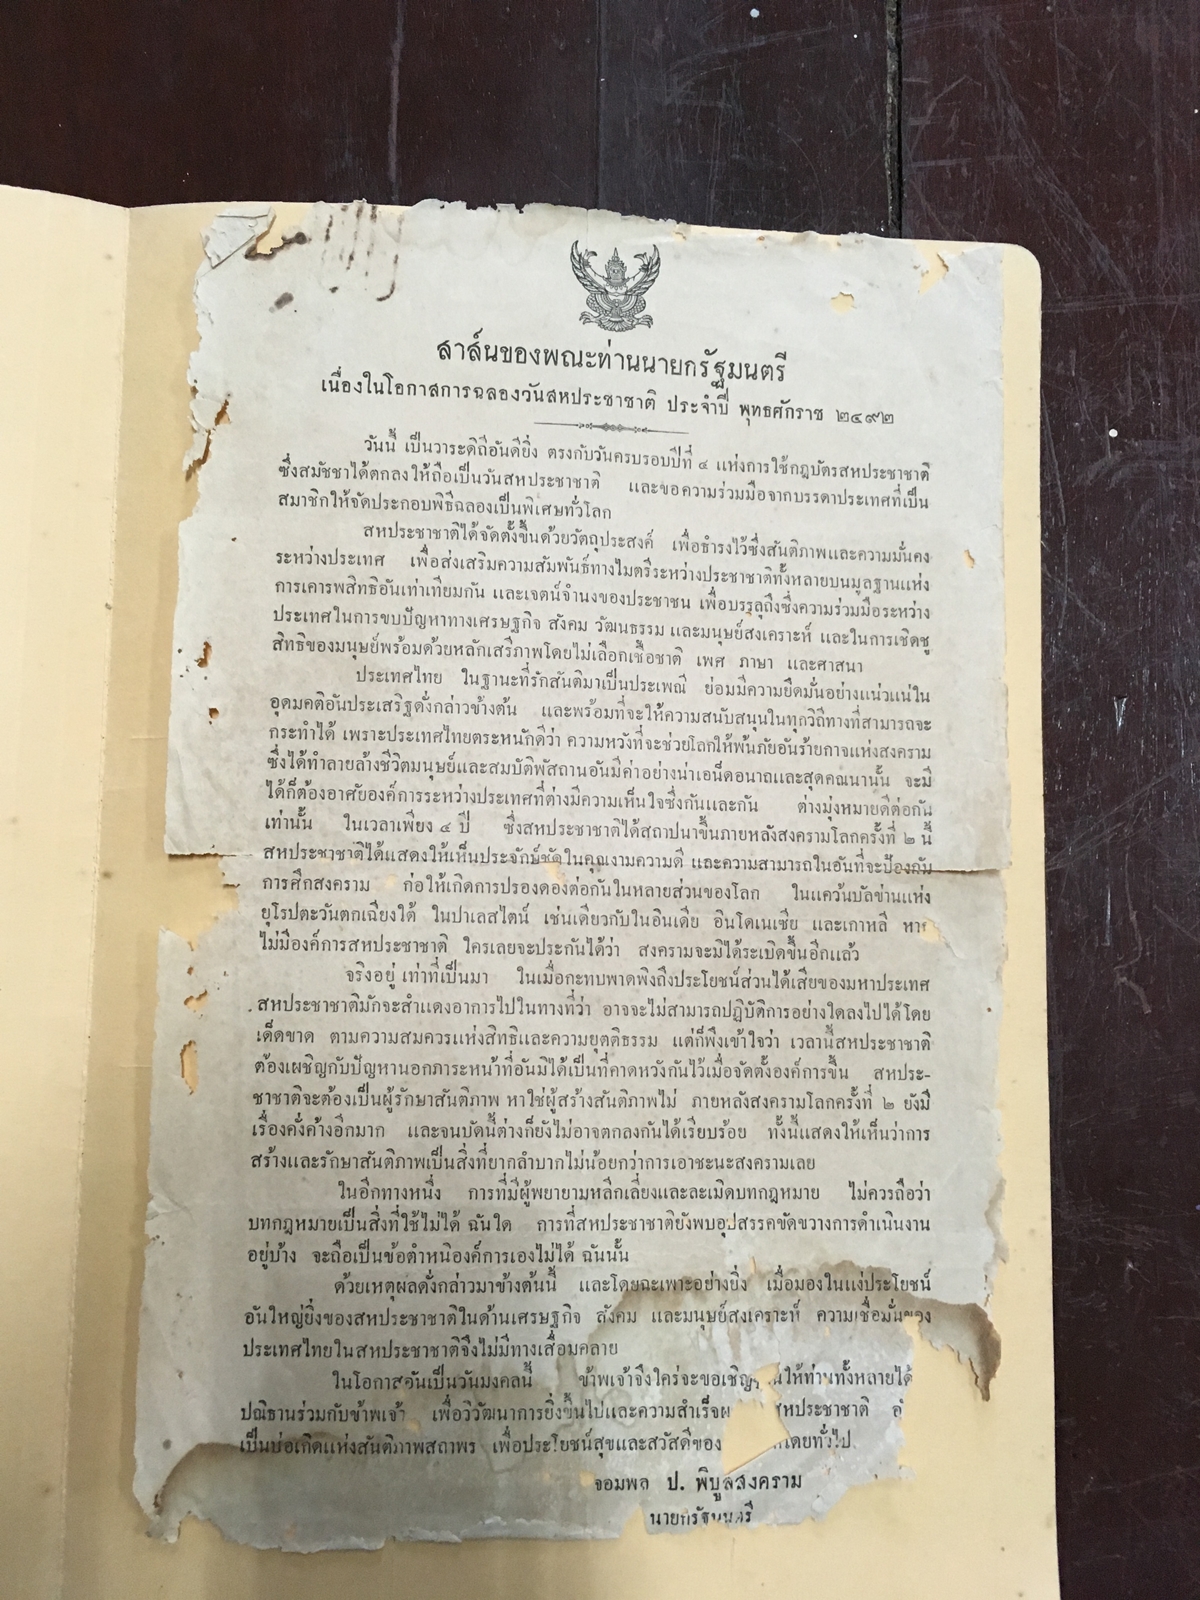 สาส์นของพณะท่านนายกรัฐมนตรี
เนื่องในโอกาสการฉลองวันสหประชาชาติ ประจำปี พุทธศักราช ๒๔๙๒
วันนี้ เป็นวาระดิถีอันดียิ่ง ตรงกับวันครบรอบปีที่ ๔ แห่งการใช้กฎบัตรสหประชาชาติ
ซึ่งสมัชชาได้ตกลงให้ถือเป็นวันสหประชาชาติ และขอความร่วมมือจากบรรดาประเทศที่เป็น
สมาชิกให้จัดประกอบพิธีฉลองเป็นพิเศษทั่วโลก
สหประชาชาติได้จัดตั้งขึ้นด้วยวัตถุประสงค์ เพื่อธำรงไว้ซึ่งสันติภาพและความมั่นคง
ระหว่างประเทศ เพื่อส่งเสริมความสัมพันธ์ทางไมตรีระหว่างประชาชาติทั้งหลายบนมูลฐานแห่ง
การเคารพสิทธิอันเท่าเทียมกัน และเจตน์จำนงของประชาชน เพื่อบรรลุถึงซึ่งความร่วมมือระหว่าง
ประเทศในการขบปัญหาทางเศรษฐกิจ สังคม วัฒนธรรม และมนุษย์สงเคราะห์ และในการเชิดชู
สิทธิของมนุษย์พร้อมด้วยหลักเสรีภาพโดยไม่เลือกเชื้อชาติ เพศ ภาษา และศาสนา
ประเทศไทย ในฐานะที่รักสันติมาเป็นประเพณี ย่อมมีความยึดมั่นอย่างแน่วแน่ใน
อุดมคติอันประเสริฐดั่งกล่าวข้างต้น และพร้อมที่จะให้ความสนับสนุนในทุกวิถีทางที่สามารถจะ
กระทำได้ เพราะประเทศไทยตระหนักดีว่า ความหวังที่จะช่วยโลกให้พ้นภัยอันร้ายกาจแห่งสงคราม
ซึ่งได้ทำลายล้างชีวิตมนุษย์และสมบัติพัสถานอันมีค่าอย่างน่าเอน็ดอนาถและสุดคณนานั้น จะมี
ได้ก็ต้องอาศัยองค์การระหว่างประเทศที่ต่างมีความเห็นใจซึ่งกันและกัน ต่างมุ่งหมายดีต่อกัน
เท่านั้น ในเวลาเพียง ๔ ปี ซึ่งสหประชาชาติได้สถาปนาขึ้นภายหลังสงครามโลกครั้งที่ ๒ นี้
สหประชาชาติได้แสดงให้เห็นประจักษ์ชัดในคุณงามความดี และความสามารถในอันที่จะป้องกัน
การศึกสงคราม ก่อให้เกิดการปรองดองต่อกันในหลายส่วนของโลก ในแคว้นบัลข่านแห่ง
ยุโรปตะวันตกเฉียงใต้ ในปาเลสไตน์ เช่นเดียวกับในอินเดีย อินโดเนเซีย และเกาหลี
ไม่มีองค์การสหประชาชาติ ใครเลยจะประกันได้ว่า สงครามจะมิได้ระเบิดขึ้นอีกแล้ว
จริงอยู่ เท่าที่เป็นมา ในเมื่อกะทบพาดพิงถึงประโยชน์ส่วนได้เสียของมหาประเทศ
สหประชาชาติมักจะสำแดงอาการไปในทางที่ว่า อาจจะไม่สามารถปฏิบัติการอย่างใดลงไปได้โดย
เด็ดขาด ตามความสมควรแห่งสิทธิและความยุตติธรรม แต่ก็พึงเข้าใจว่า เวลานี้สหประชาชาติ
ต้องเผชิญกับปัญหานอกภาระหน้าที่อันมิได้เป็นที่คาดหวังกันไว้เมื่อจัดตั้งองค์การขึ้น สหประ-
ชาชาติจะต้องเป็นผู้รักษาสันติภาพ หาใช่ผู้สร้างสันติภาพไม่ ภายหลังสงครามโลกครั้งที่ ๒ ยังมี
เรื่องคั่งค้างอีกมาก และจนบัดนี้ต่างก็ยังไม่อาจตกลงกันได้เรียบร้อย ทั้งนี้แสดงให้เห็นว่าการ
สร้างและรักษาสันติภาพเป็นสิ่งที่ยากลำบากไม่น้อยกว่าการเอาชะนะสงครามเลย
ในอีกทางหนึ่ง การที่มีผู้พยายามหลีกเลี่ยงและละเมิดบทกฎหมาย ไม่ควรถือว่า
บทกฎหมายเป็นสิ่งที่ใช้ไม่ได้ ฉันใด การที่สหประชาชาติยังพบอุปสรรคขัดขวางการดำเนินงาน
อยู่บ้าง จะถือเป็นข้อตำหนิองค์การเองไม่ได้ ฉันนั้น
ด้วยเหตุผลดั่งกล่าวมาข้างต้นนี้ และโดยฉะเพาะอย่างยิ่ง เมื่อมองในแง่ประโยชน์
อันใหญ่ยิ่งของสหประชาชาติในด้านเศรษฐกิจ สังคม และมนุษย์สงเคราะห์ ความเชื่อมั่นของ
ประเทศไทยในสหประชาชาติจึงไม่มีทางเสื่อมคลาย
ในโอกาสอันเป็นวันมงคลนี้ ข้าพเจ้าจึงใคร่จะขอเชิญ ให้ท่านทั้งหลายได้
ปณิธานร่วมกับข้าพเจ้า เพื่อวิวัฒนาการยิ่งขึ้นไปและความสำเร็จ สหประชาชาติ
เป็นบ่อเกิดแห่งสันติภาพสถาพร เพื่อประโยชน์สุขและสวัสดีของ โดยทั่วไป
จอมพล ป. พิบูลสงคราม
นายกรัฐมนตรี